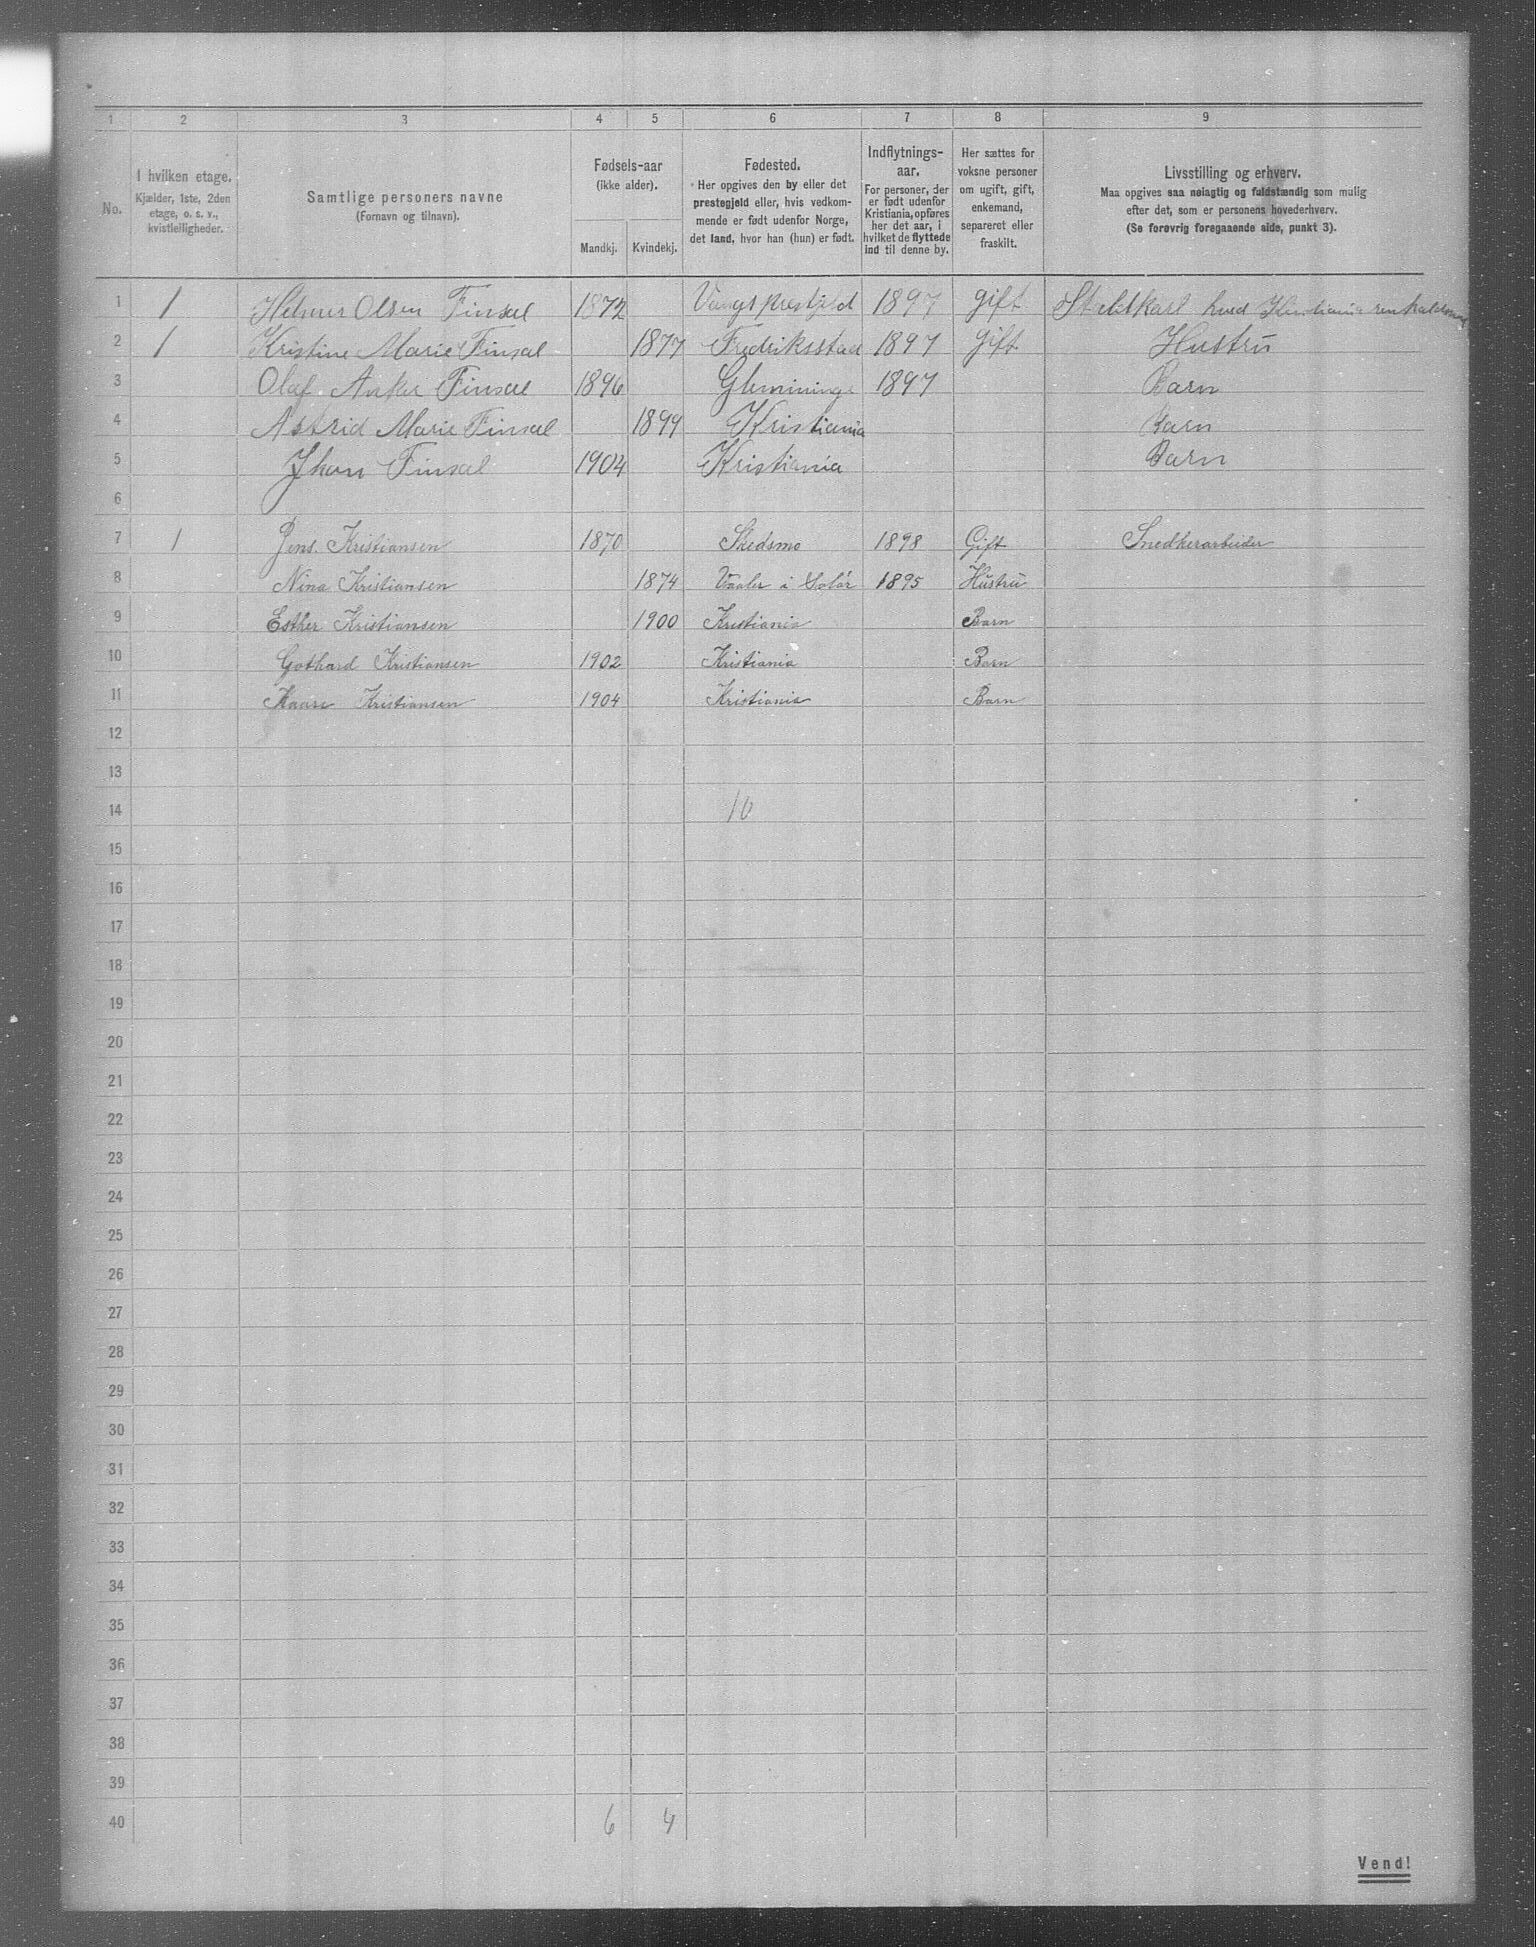 1 2 3 4 5 6 7 8 9
No.
I hvilken etage.
Kjælder, 1ste, 2den
etage, o. s. v.,
kvistleiligheder.
Samtlige personers navne
(Fornavn og tilnavn).
Fødsels-aar
(ikke alder).
Mandkj. Kvindekj.
Fødested.
Her opgives den by eller det
prestegjeld eller, hvis vedkom-
mende er født udenfor Norge,
det land, hvor han (hun) er født.
Indflytnings-
aar.
For personer, der
er født udenfor
Kristiania, opføres
her det aar, i
hvilket de flyttede
ind til denne by.
Her sættes for
voksne personer
om ugift, gift,
enkemand,
separeret eller
fraskilt.
Livsstilling og erhverv.
Maa opgives saa nøiagtig og fuldstændig som mulig
efter det, som er personens hovederhverv.
(Se forøvrig foregaaende side, punkt 3).
1 1 Helmer Olsen Finsal 1872 Vangs prestjeld 1897 gift hved
2 1 Kristine Marie Finsal 1877 Fredriksstad 1897 gift Hustru
3 Olaf Anker Finsal 1896 1897 Barn
4 Astrid Marie Finsal 1899 Kristiania Barn
5 Jhan Finsal 1904 Kristiania Barn
6
7 1 Jens Kristiansen 1870 Skedsmo 1898 Gift Snedkerarbeider
8 Nina Kristiansen 1874 Vaaler i Solør 1895 Hustru
9 Esther Kristiansen 1900 Kristiania Barn
10 Gothard Kristiansen 1902 Kristiania Barn
11 Kaare Kristiansen 1904 Kristiania Barn
12
13
14 10
15
16
17
18
19
20
21
22
23
24
25
26
27
28
29
30
31
32
33
34
35
36
37
38
39
40 6 4
Vend!